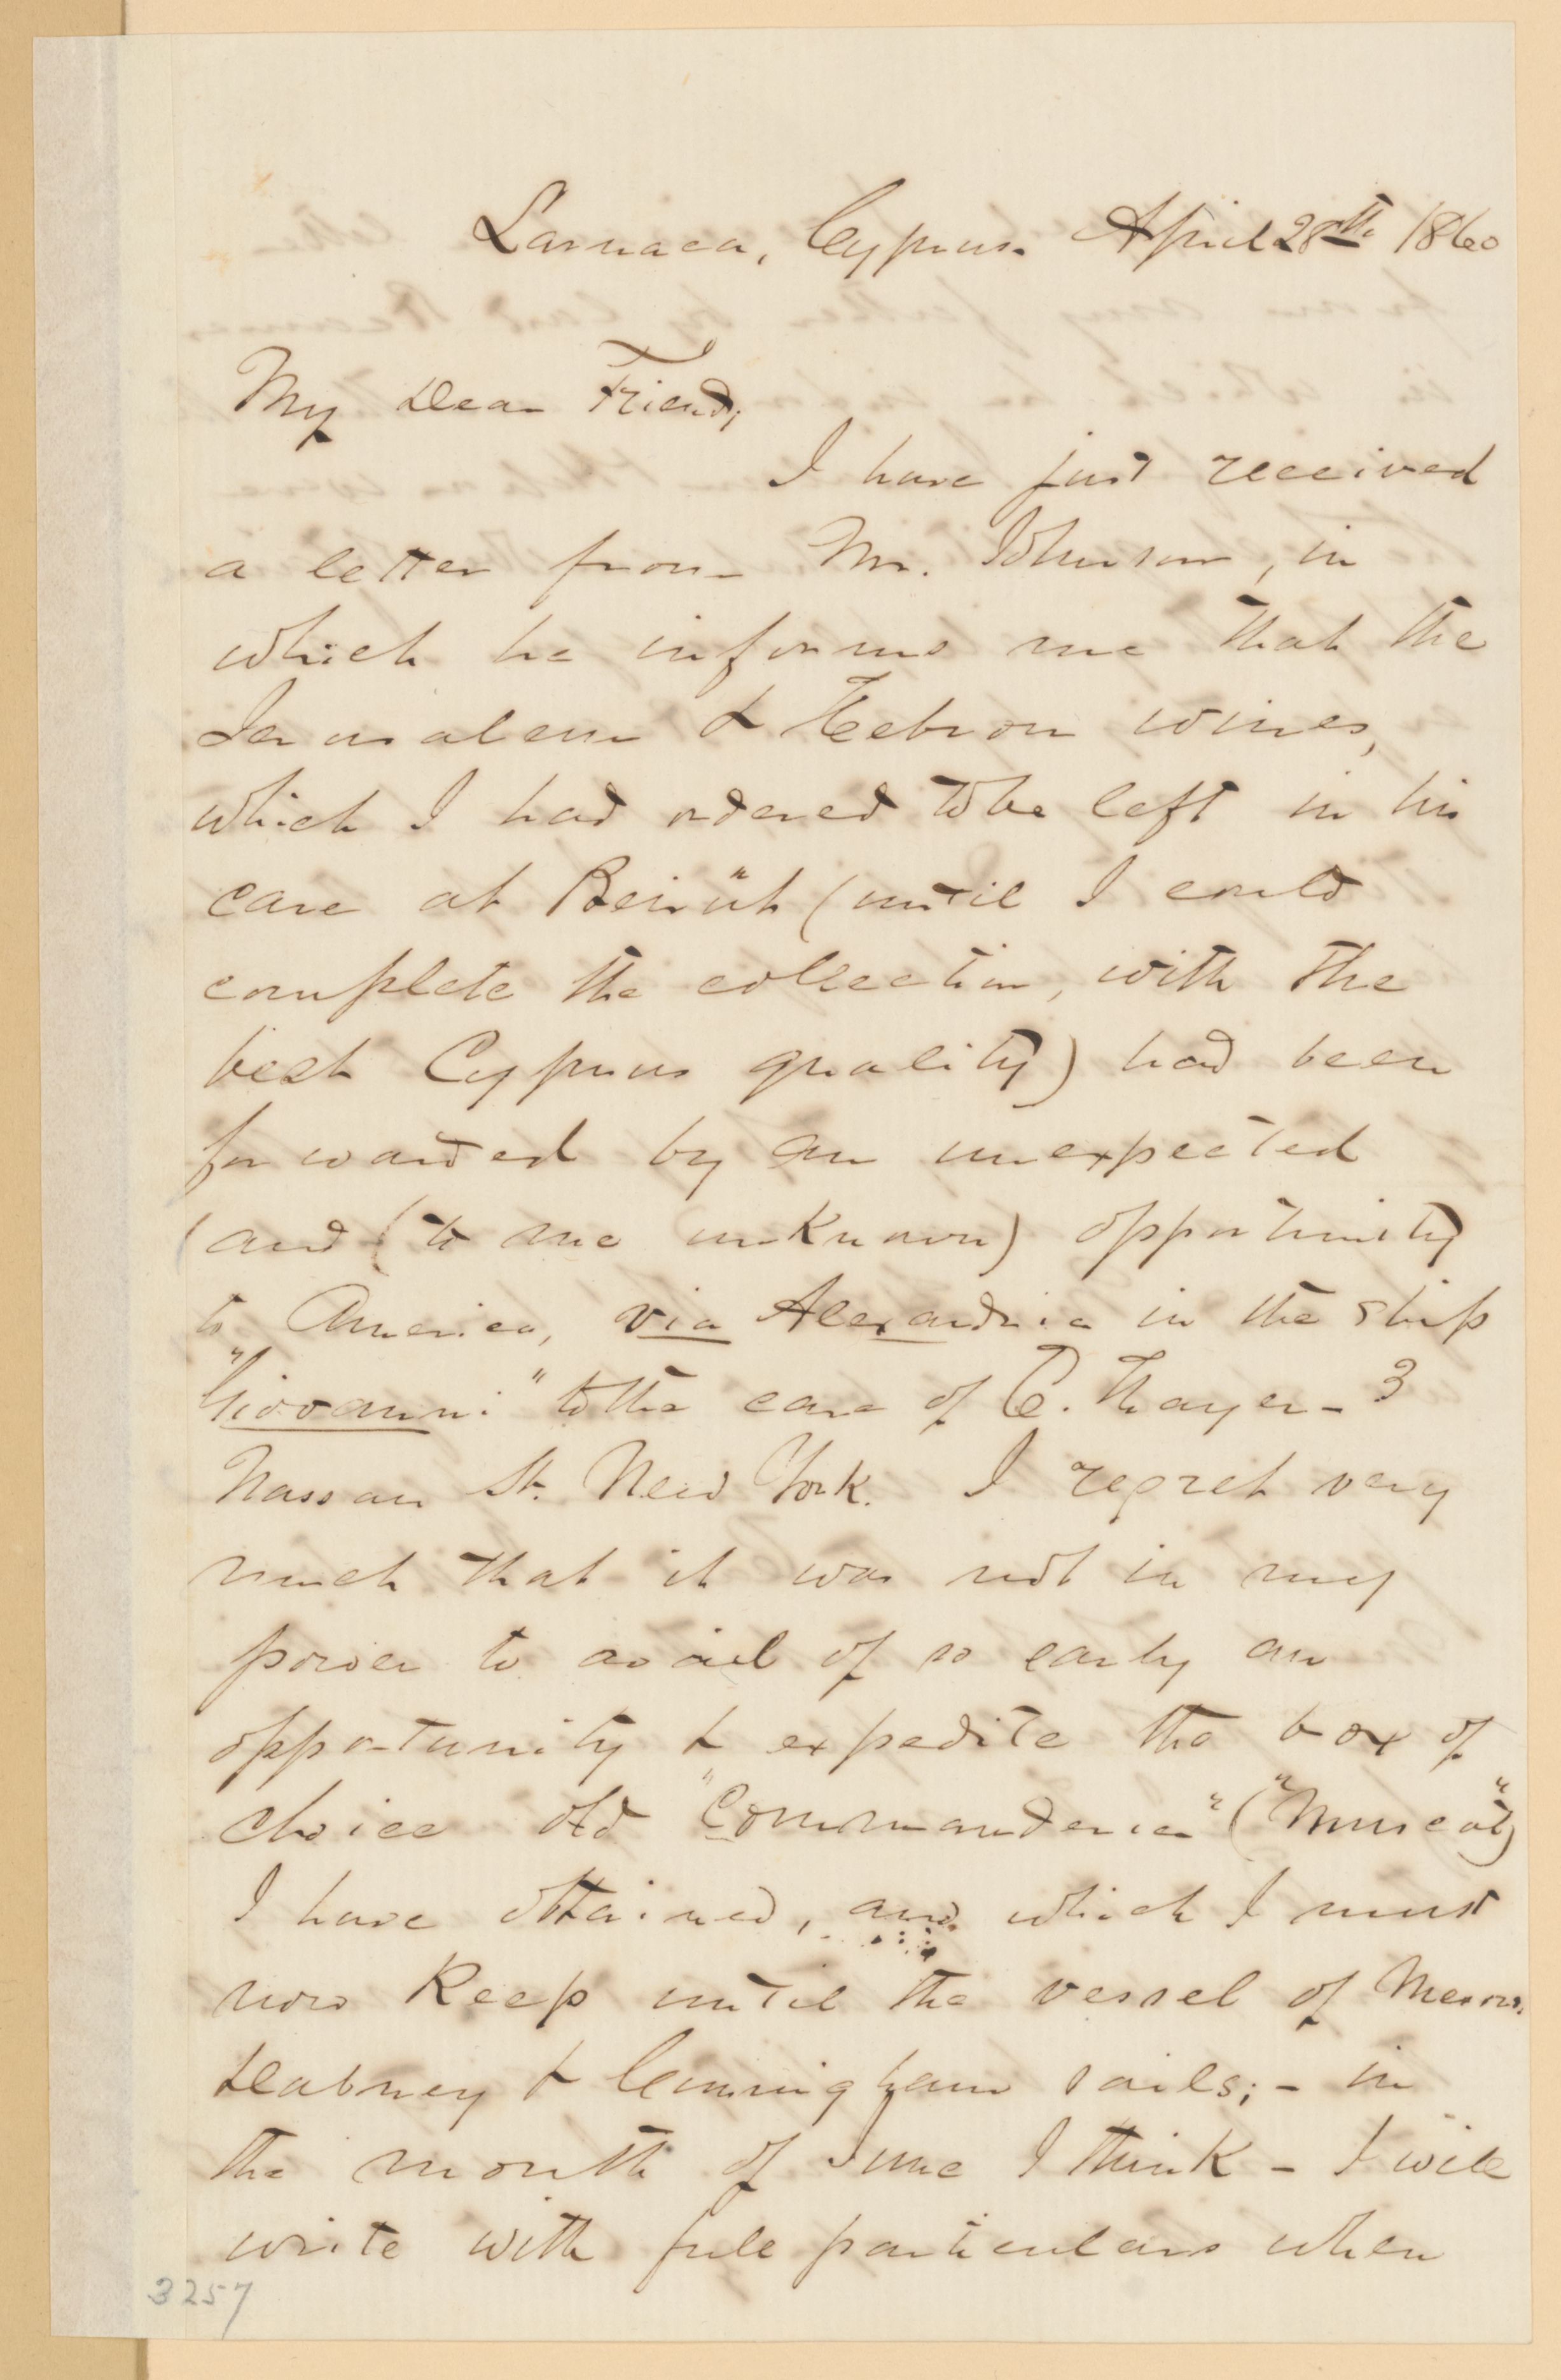 Larnaca, Cyprus. April 28th 1860
My Dear Friend,
I have just received
a letter from Mr. Johnson, in
which he informs me that the
Jerusalem & Hebron wines,
which I had ordered to be left in his
care at Beirût (until I could
complete the collection, with the
best Cyprus quality) had been
forwarded by an unexpected
(and (to me unknown) opportunity
to America, via Alexandria in the ship
"Giovanni" to the care of C. Thayer - 3
Nassau St. New York. I regret very
much that it was not in my
power to avail of so early an
opportunity & expedite the box of
choice old "Commanderia" ("Muscat")
I have obtained, and which I must
now keep until the vessel of Messrs.
Dabney & Cunningham sails; - in
the month of June I think - I will
write with full particulars when
3257